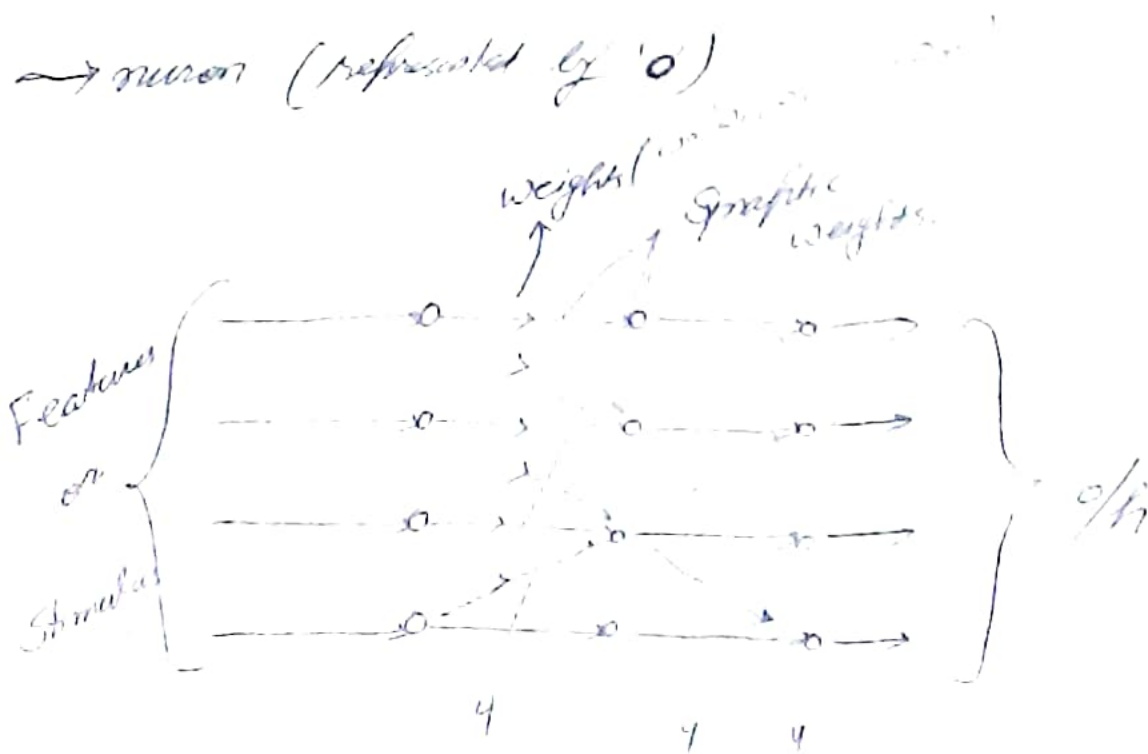 → nuron (represented by 'o')
weights (
Synaptic
weights
Features
or
Stimulus
o/p
4 4 4